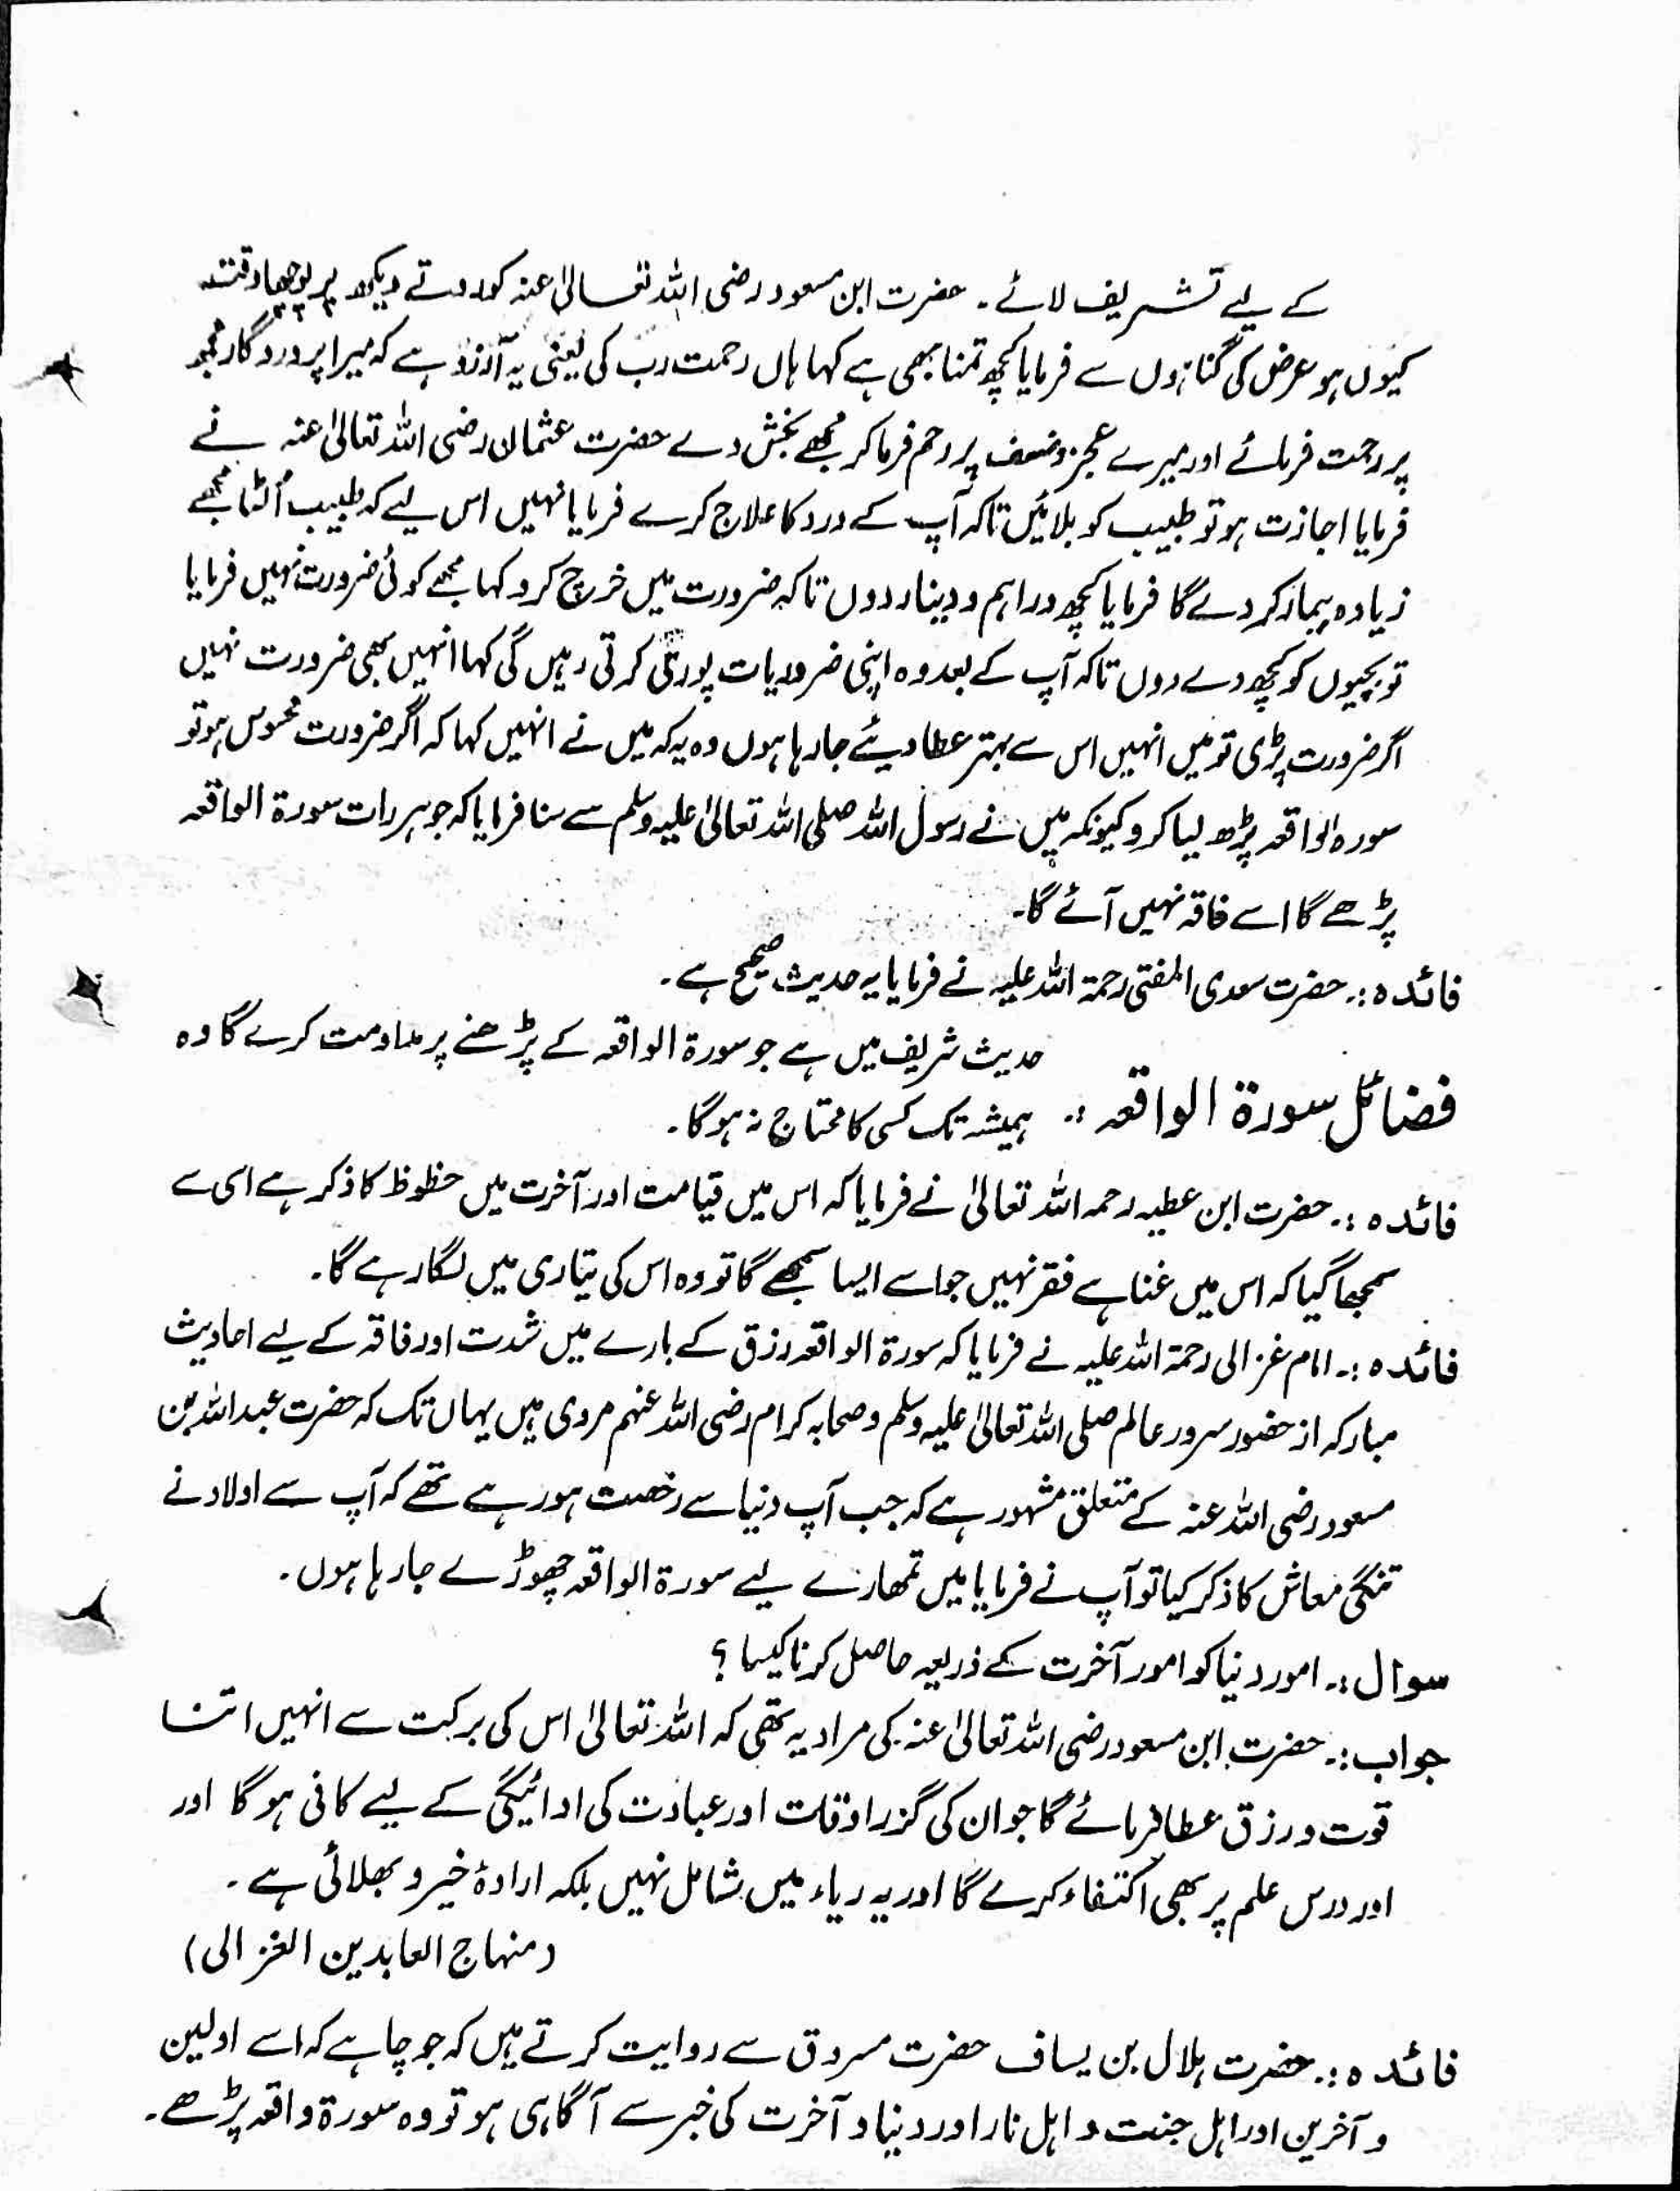 کے لیے تشریف لائے۔ حضرت ابن مسعود رضی اللہ تعالیٰ عنہ کو روتے دیکھ پر پوچھا
کیوں ہو عرض کی گناہوں سے فرمایا کچھ تمنا بھی ہے کہا ہاں رحمت رب کی یعنی یہ آرزو ہے کہ میرا پروردگار مجھ
پر رحمت فرمائے اور میرے عجز و ضعف پر رحم فرما کر مجھے بخش دے حضرت عثمان رضی اللہ تعالیٰ عنہ نے
فرمایا اجازت ہو تو طبیب کو بلائیں تاکہ آپ کے درد کا علاج کرے فرمایا نہیں اس لیے کہ طبیب اُلٹا مجھے
زیادہ بیمار کر دے گا فرمایا کچھ دراہم و دینار دوں تاکہ ضرورت میں خرچ کرو کہا مجھے کوئی ضرورت نہیں فرمایا
تو بچیوں کو کچھ دے دوں تاکہ آپ کے بعد وہ اپنی ضروریات پوری کرتی رہیں گی کہا انہیں بھی ضرورت نہیں
اگر ضرورت پڑی تو میں انہیں اس سے بہتر عطا دیئے جا رہا ہوں وہ یہ کہ میں نے انہیں کہا کہ اگر ضرورت محسوس ہو تو
سورہ الواقعہ پڑھ لیا کرو کیونکہ میں نے رسول اللہ صلی اللہ تعالیٰ علیہ وسلم سے سنا فرمایا کہ جو ہر رات سورۃ الواقعہ
پڑھے گا اسے فاقہ نہیں آئے گا۔
فائدہ :۔ حضرت سعدی المفتی رحمۃ اللہ علیہ نے فرمایا یہ حدیث صحیح ہے۔
حدیث شریف میں ہے جو سورۃ الواقعہ کے پڑھنے پر مداومت کرے گا وہ
فضائل سورۃ الواقعہ :۔ ہمیشہ تک کسی کا محتاج نہ ہوگا۔
فائدہ :۔ حضرت ابن عطیہ رحمہ اللہ تعالیٰ نے فرمایا کہ اس میں قیامت اور آخرت میں حظوظ کا ذکر ہے اسی سے
سمجھا گیا کہ اس میں غنا ہے فقر نہیں جو اسے ایسا سمجھے گا تو وہ اس کی تیاری میں لگا رہے گا۔
فائدہ :۔ امام غزالی رحمۃ اللہ علیہ نے فرمایا کہ سورۃ الواقعہ رزق کے بارے میں شدت اور فاقہ کے لیے احادیث
مبارکہ از حضور سرور عالم صلی اللہ تعالیٰ علیہ وسلم و صحابہ کرام رضی اللہ عنہم مروی ہیں یہاں تک کہ حضرت عبداللہ بن
مسعود رضی اللہ عنہ کے متعلق مشہور ہے کہ جب آپ دنیا سے رخصت ہو رہے تھے کہ آپ سے اولاد نے
تنگی معاش کا ذکر کیا تو آپ نے فرمایا میں تمھارے لیے سورۃ الواقعہ چھوڑے جا رہا ہوں۔
سوال :۔ امور دنیا کو امور آخرت کے ذریعہ حاصل کرنا کیسا ؟
جواب :۔ حضرت ابن مسعود رضی اللہ تعالیٰ عنہ کی مراد یہ تھی کہ اللہ تعالیٰ اس کی برکت سے انہیں اتنا
قوت و رزق عطا فرمائے گا جو ان کی گزر اوقات اور عبادت کی ادائیگی کے لیے کافی ہوگا اور
اور درس علم پر بھی اکتفاء کرے گا اور یہ ریاء میں شامل نہیں بلکہ ارادۂ خیر و بھلائی ہے۔
(منہاج العابدین الغزالی)
فائدہ :۔ حضرت ہلال بن یساف حضرت مسروق سے روایت کرتے ہیں کہ جو چاہے کہ اسے اولین
و آخرین اور اہل جنت و اہل نار اور دنیا و آخرت کی خبر سے آگاہی ہو تو وہ سورۃ واقعہ پڑھے۔